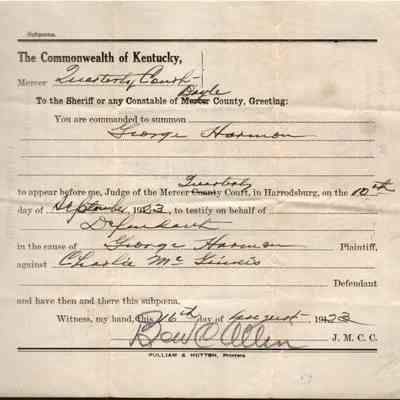 Subpœna.
The Commonwealth of Kentucky,
Mercer Quarterly Court
Boyle
To the Sheriff or any Constable of Mercer County, Greeting:
You are commanded to summon
George Harmon
Quarterly
to appear before me, Judge of the Mercer County Court, in Harrodsburg, on the 10th
day of September, 1923, to testify on behalf of
Defendant
in the cause of George Harmon Plaintiff,
against Charlie Mc Ginnis
Defendant
and have then and there this subpœna.
Witness, my hand, this 16th day of August 1923
Ben C Allen J. M. C. C.
PULLIAM & HUTTON, Printers